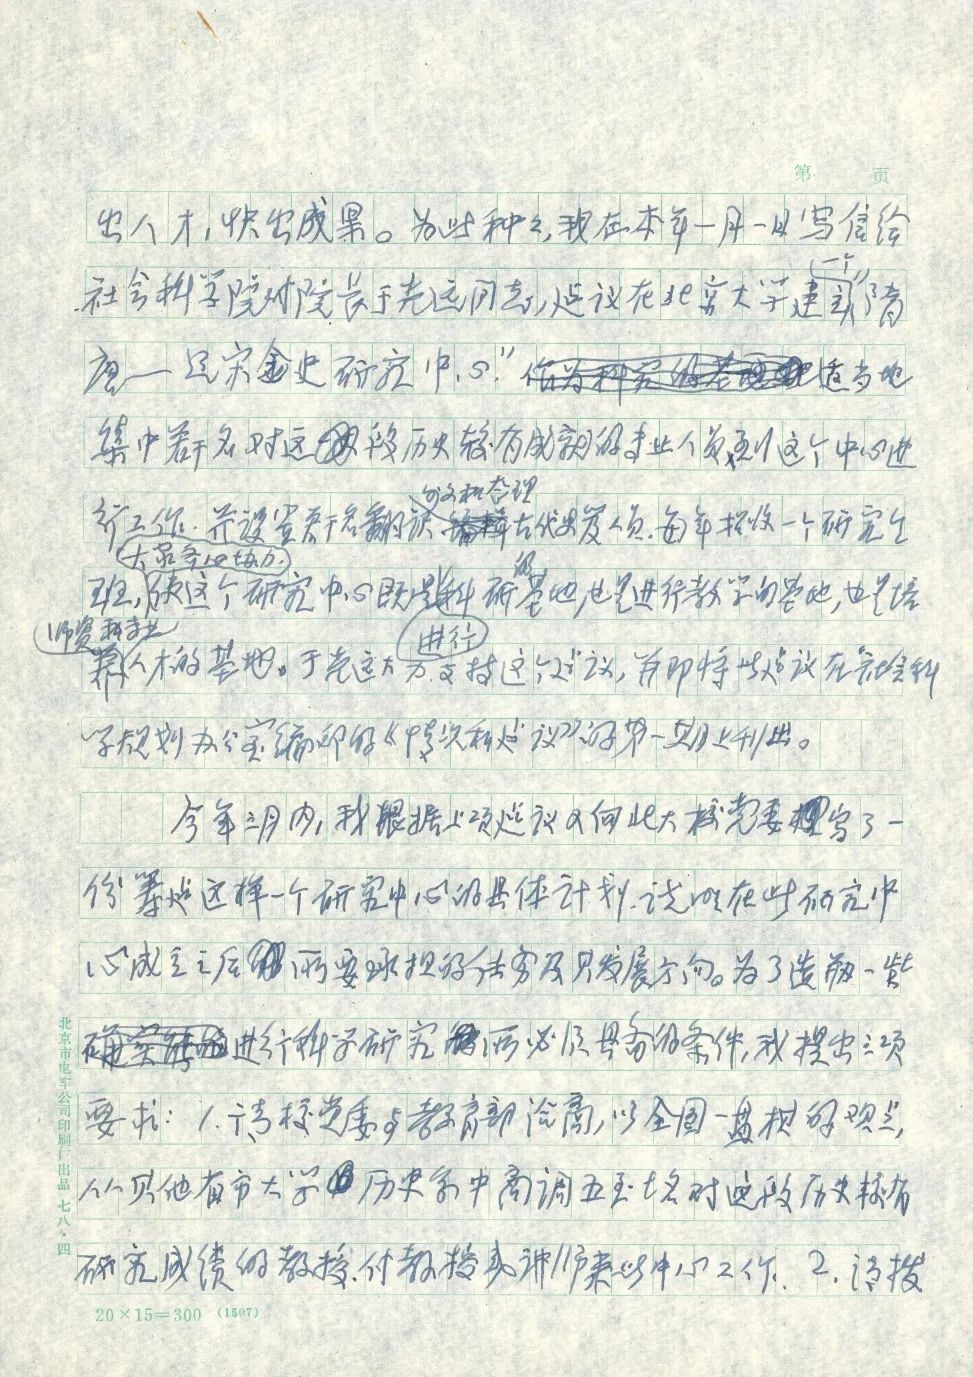 第 页
出人才,快出成果。为此种种,我在本年一月一日写信给
社会科学院付院长于光远同志,建议在北京大学建立一个“隋
唐——辽宋金史研究中心”, 适当地
集中若干名对这段历史较有成就的专业人员,到这个中心进
行工作,并设置若干名翻译、 古代 人员,每年招收一个研究生
分类和整理
班,使这个研究中心既是科研的基地,也是进行教学的基地,也是培
大家齐心协力,
养人才的基地。于光远大力支持这个建议,并即将此建议在社会科
师资和专业
进行
学规划办公室编印的《情况和建议》的第一期上刊出。
今年三月内,我根据上项建议又向北大校党委写了一
份筹建这样一个研究中心的具体计划,说明在此研究中
心成立之后所要承担的任务及其发展方向。为了造成一些
进行科学研究所必须具备的条件,我提出三项
要求:1.请校党委与教育部洽商,以全国一盘棋的观点,
从其他省市大学历史系中商调五至七名对这段历史较有
研究成绩的教授、付教授或讲师来此中心工作。2.请拨
20×15=300 (1507)
北京市电车公司印刷厂出品 七八·四